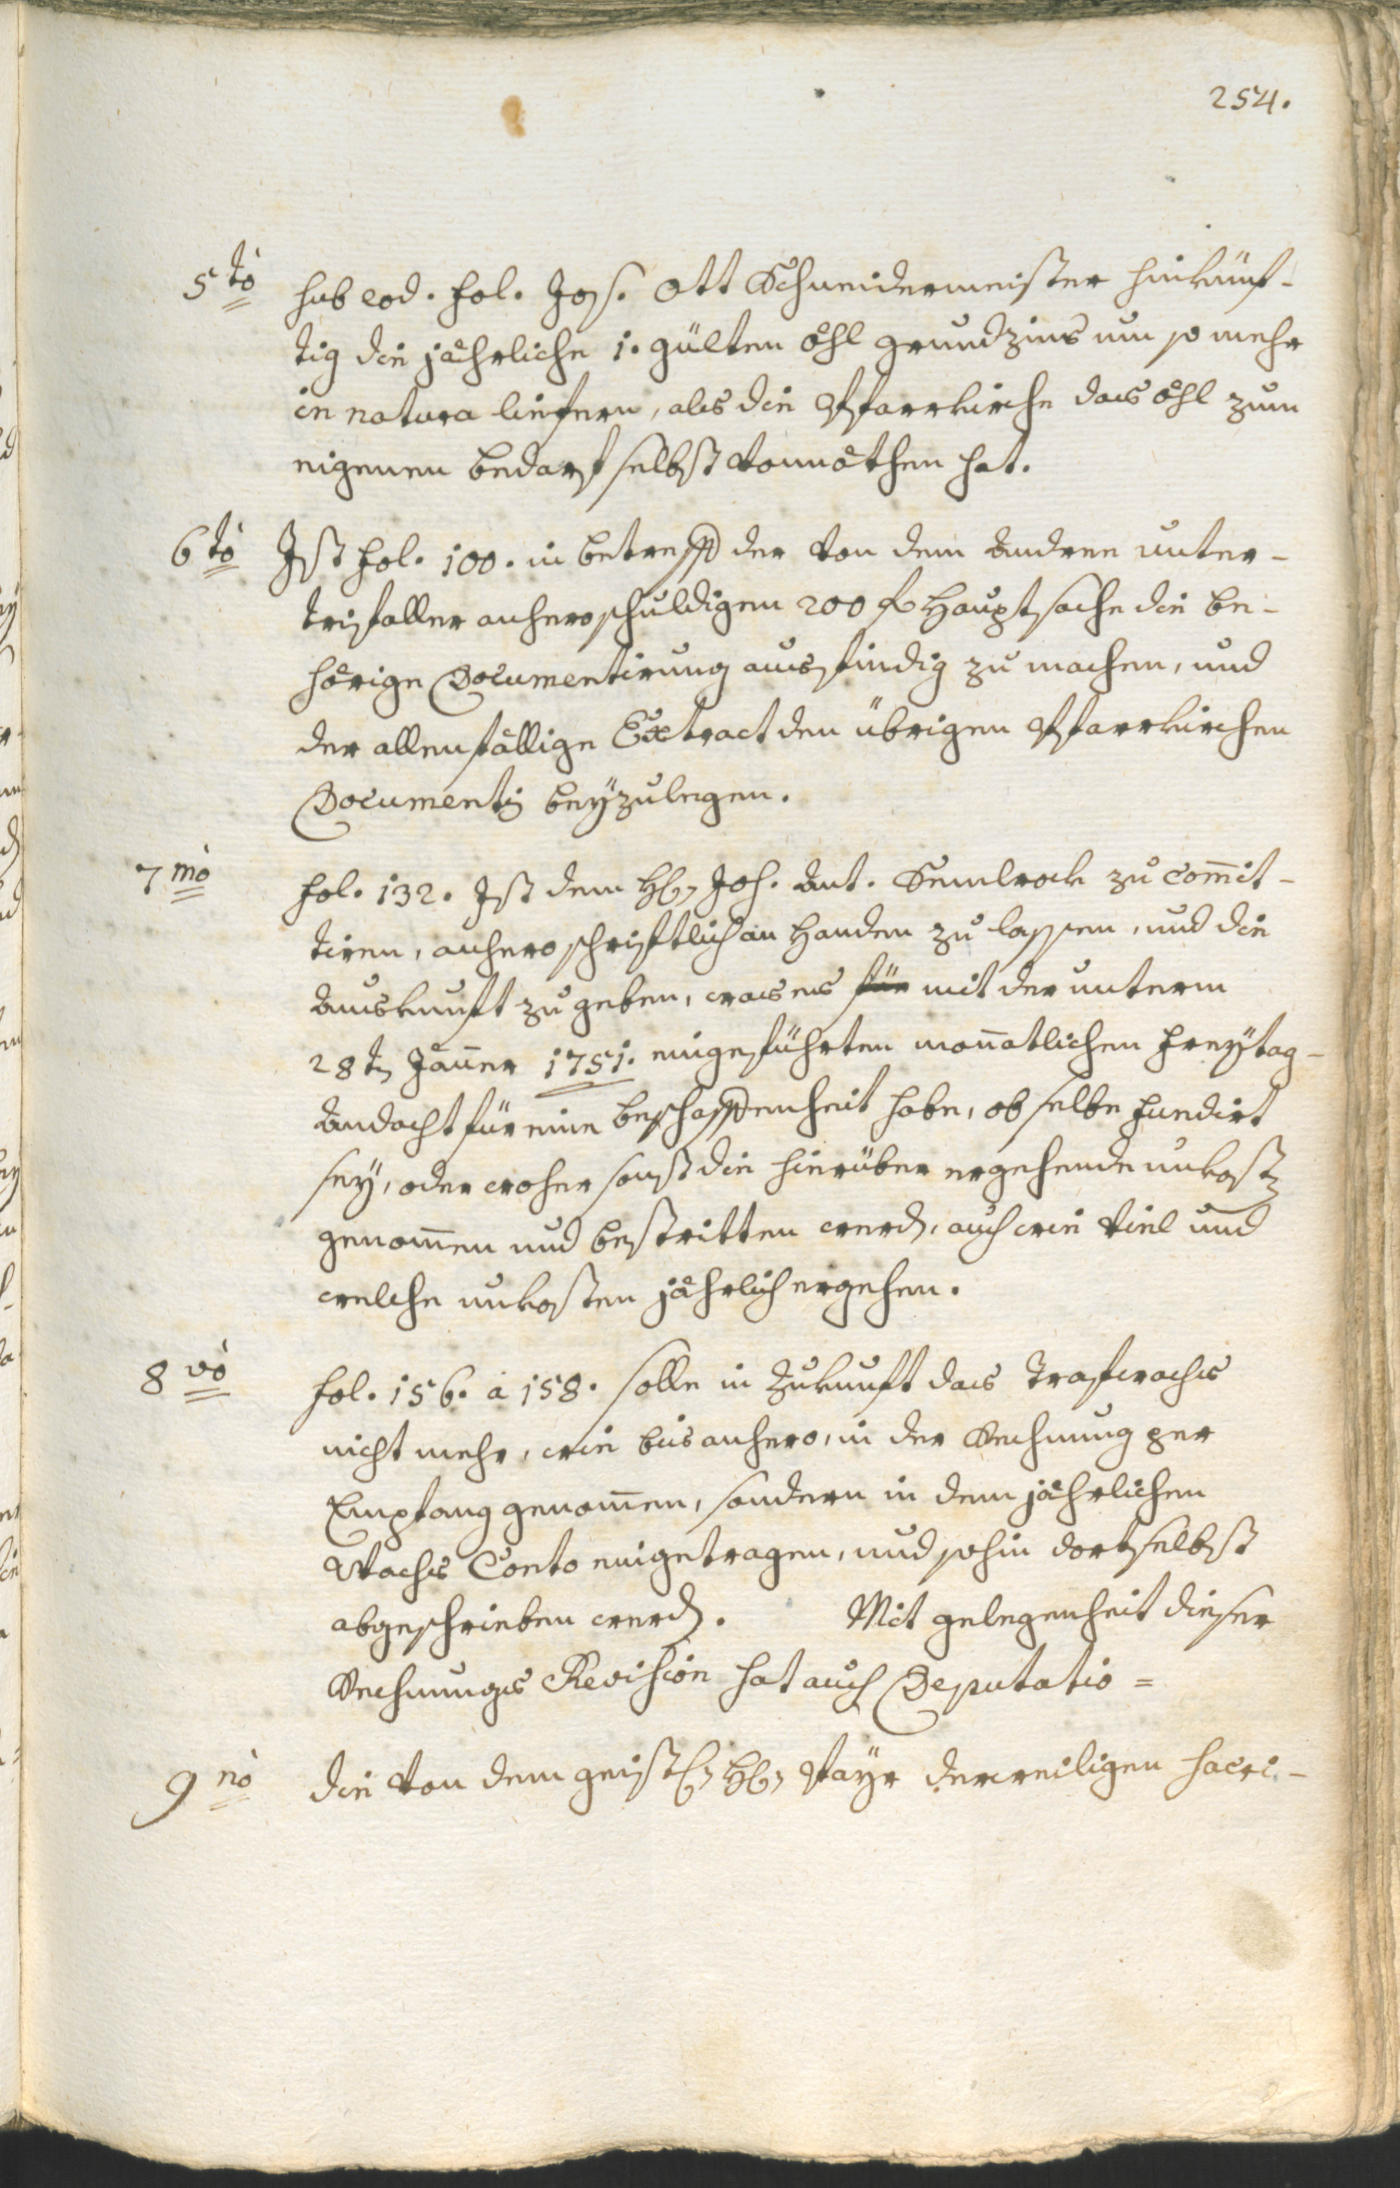 254.
5to sub eod. fol. Jos. Ott Schneidermeister hinkünf-
tig die jährliche 1. gülten öhl grundzins um so mehr
in natura liefern, als die Pfarrkirche das öhl zum
eigenen bedarf selbst vonnöthen hat.
6to Ist fol. 100. in betreff der von dem Andree unter-
trifaller anhero schuldigen 200 f Hauptsache die be-
hörige Documentirung ausfindig zu machen, und
der allenfällige Extract den übrigen Pfarrkirchen
Documentis beyzulegen.
7mo fol. 132. Ist dem H: Jos. Ant. Semlrock zu com̄it-
tiren, anhero schriftlich an Handen zu lassen, und die
Auskunft zu geben, was es für mit der unterm
28t Jäner 1751. eingeführten mon̄atlichen Freytag-
Andacht für eine beschaffenheit habe, ob selbe fundirt
sey, oder woher sonst die hierüber ergehende unkost
genom̄en und bestritten werd, auch wie viel und
welche unkosten jährlich ergehen.
8vo fol. 156. a 158. solle in Zukunft das Trafwachs
nicht mehr, wie bis anhero, in der Rechnung per
Empfang genom̄en, sondern in dem jährlichen
Wachs Conto eingetragen, und sohin dortselbst
abgeschrieben werd. Mit gelegenheit dieser
Rechnungs Revision hat auch Deputatio =
9no die von dem geistl: H: Mayr derweiligen sacri-